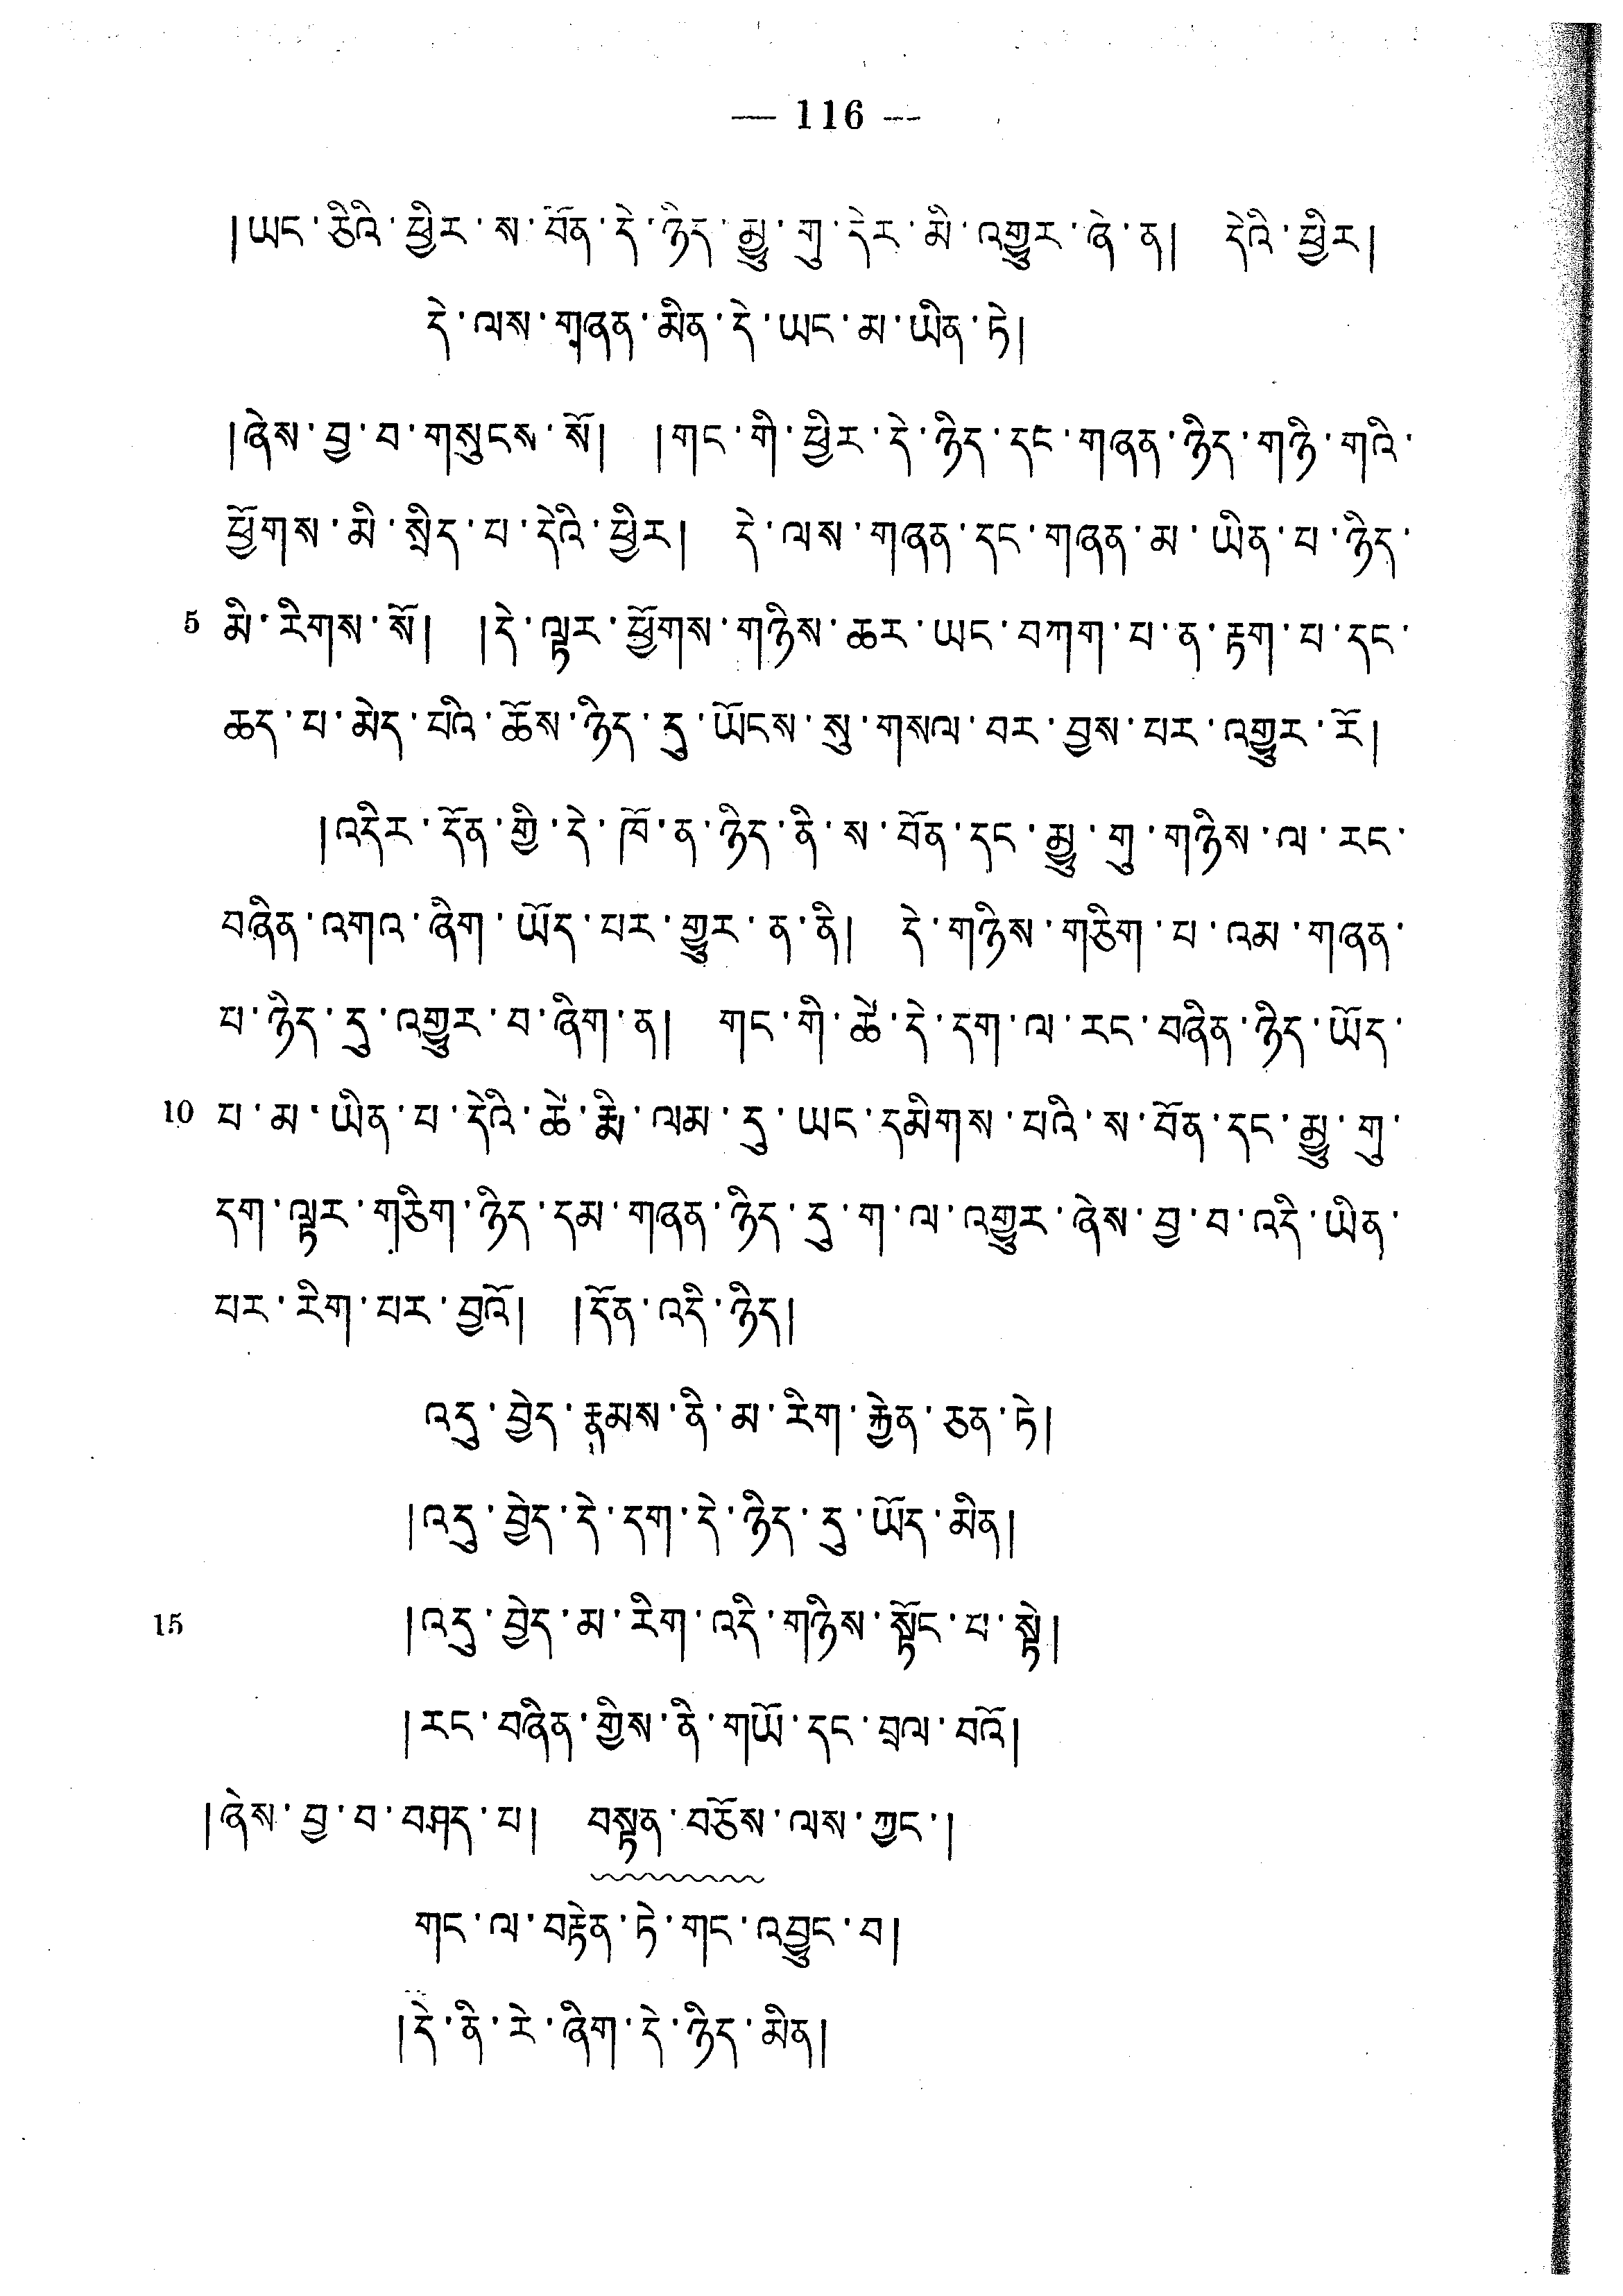 — 116 —
།ཡང་ཅིའི་ཕྱིར་ས་བོན་དེ་ཉིད་མྱུ་གུ་དེར་མི་འགྱུར་ཞེ་ན། དེའི་ཕྱིར།
དེ་ལས་གཞན་མིན་དེ་ཡང་མ་ཡིན་ཏེ།
།ཞེས་བྱ་བ་གསུངས་སོ། །གང་གི་ཕྱིར་དེ་ཉིད་དང་གཞན་ཉིད་གཉི་གའི་
ཕྱོགས་མི་སྲིད་པ་དེའི་ཕྱིར། དེ་ལས་གཞན་དང་གཞན་མ་ཡིན་པ་ཉིད་
5 མི་རིགས་སོ། །དེ་ལྟར་ཕྱོགས་གཉིས་ཆར་ཡང་བཀག་པ་ན་རྟག་པ་དང་
ཆད་པ་མེད་པའི་ཆོས་ཉིད་དུ་ཡོངས་སུ་གསལ་བར་བྱས་པར་འགྱུར་རོ།
།འདིར་དོན་གྱི་དེ་ཁོ་ན་ཉིད་ནི་ས་བོན་དང་མྱུ་གུ་གཉིས་ལ་རང་
བཞིན་འགའ་ཞིག་ཡོད་པར་གྱུར་ན་ནི། དེ་གཉིས་གཅིག་པ་འམ་གཞན་
པ་ཉིད་དུ་འགྱུར་བ་ཞིག་ན། གང་གི་ཚེ་དེ་དག་ལ་རང་བཞིན་ཉིད་ཡོད་
10 པ་མ་ཡིན་པ་དེའི་ཚེ་རྨི་ལམ་དུ་ཡང་དམིགས་པའི་ས་བོན་དང་མྱུ་གུ་
དག་ལྟར་གཅིག་ཉིད་དམ་གཞན་ཉིད་དུ་ག་ལ་འགྱུར་ཞེས་བྱ་བ་འདི་ཡིན་
པར་རིག་པར་བྱའོ། །དོན་འདི་ཉིད།
འདུ་བྱེད་རྣམས་ནི་མ་རིག་རྐྱེན་ཅན་ཏེ།
།འདུ་བྱེད་དེ་དག་དེ་ཉིད་དུ་ཡོད་མིན།
15 །འདུ་བྱེད་མ་རིག་འདི་གཉིས་སྟོང་པ་སྟེ།
།རང་བཞིན་གྱིས་ནི་གཡོ་དང་བྲལ་བའོ།
།ཞེས་བྱ་བ་བཤད་པ། བསྟན་བཅོས་ལས་ཀྱང་།
གང་ལ་བརྟེན་ཏེ་གང་འབྱུང་བ།
།དེ་ནི་རེ་ཞིག་དེ་ཉིད་མིན།